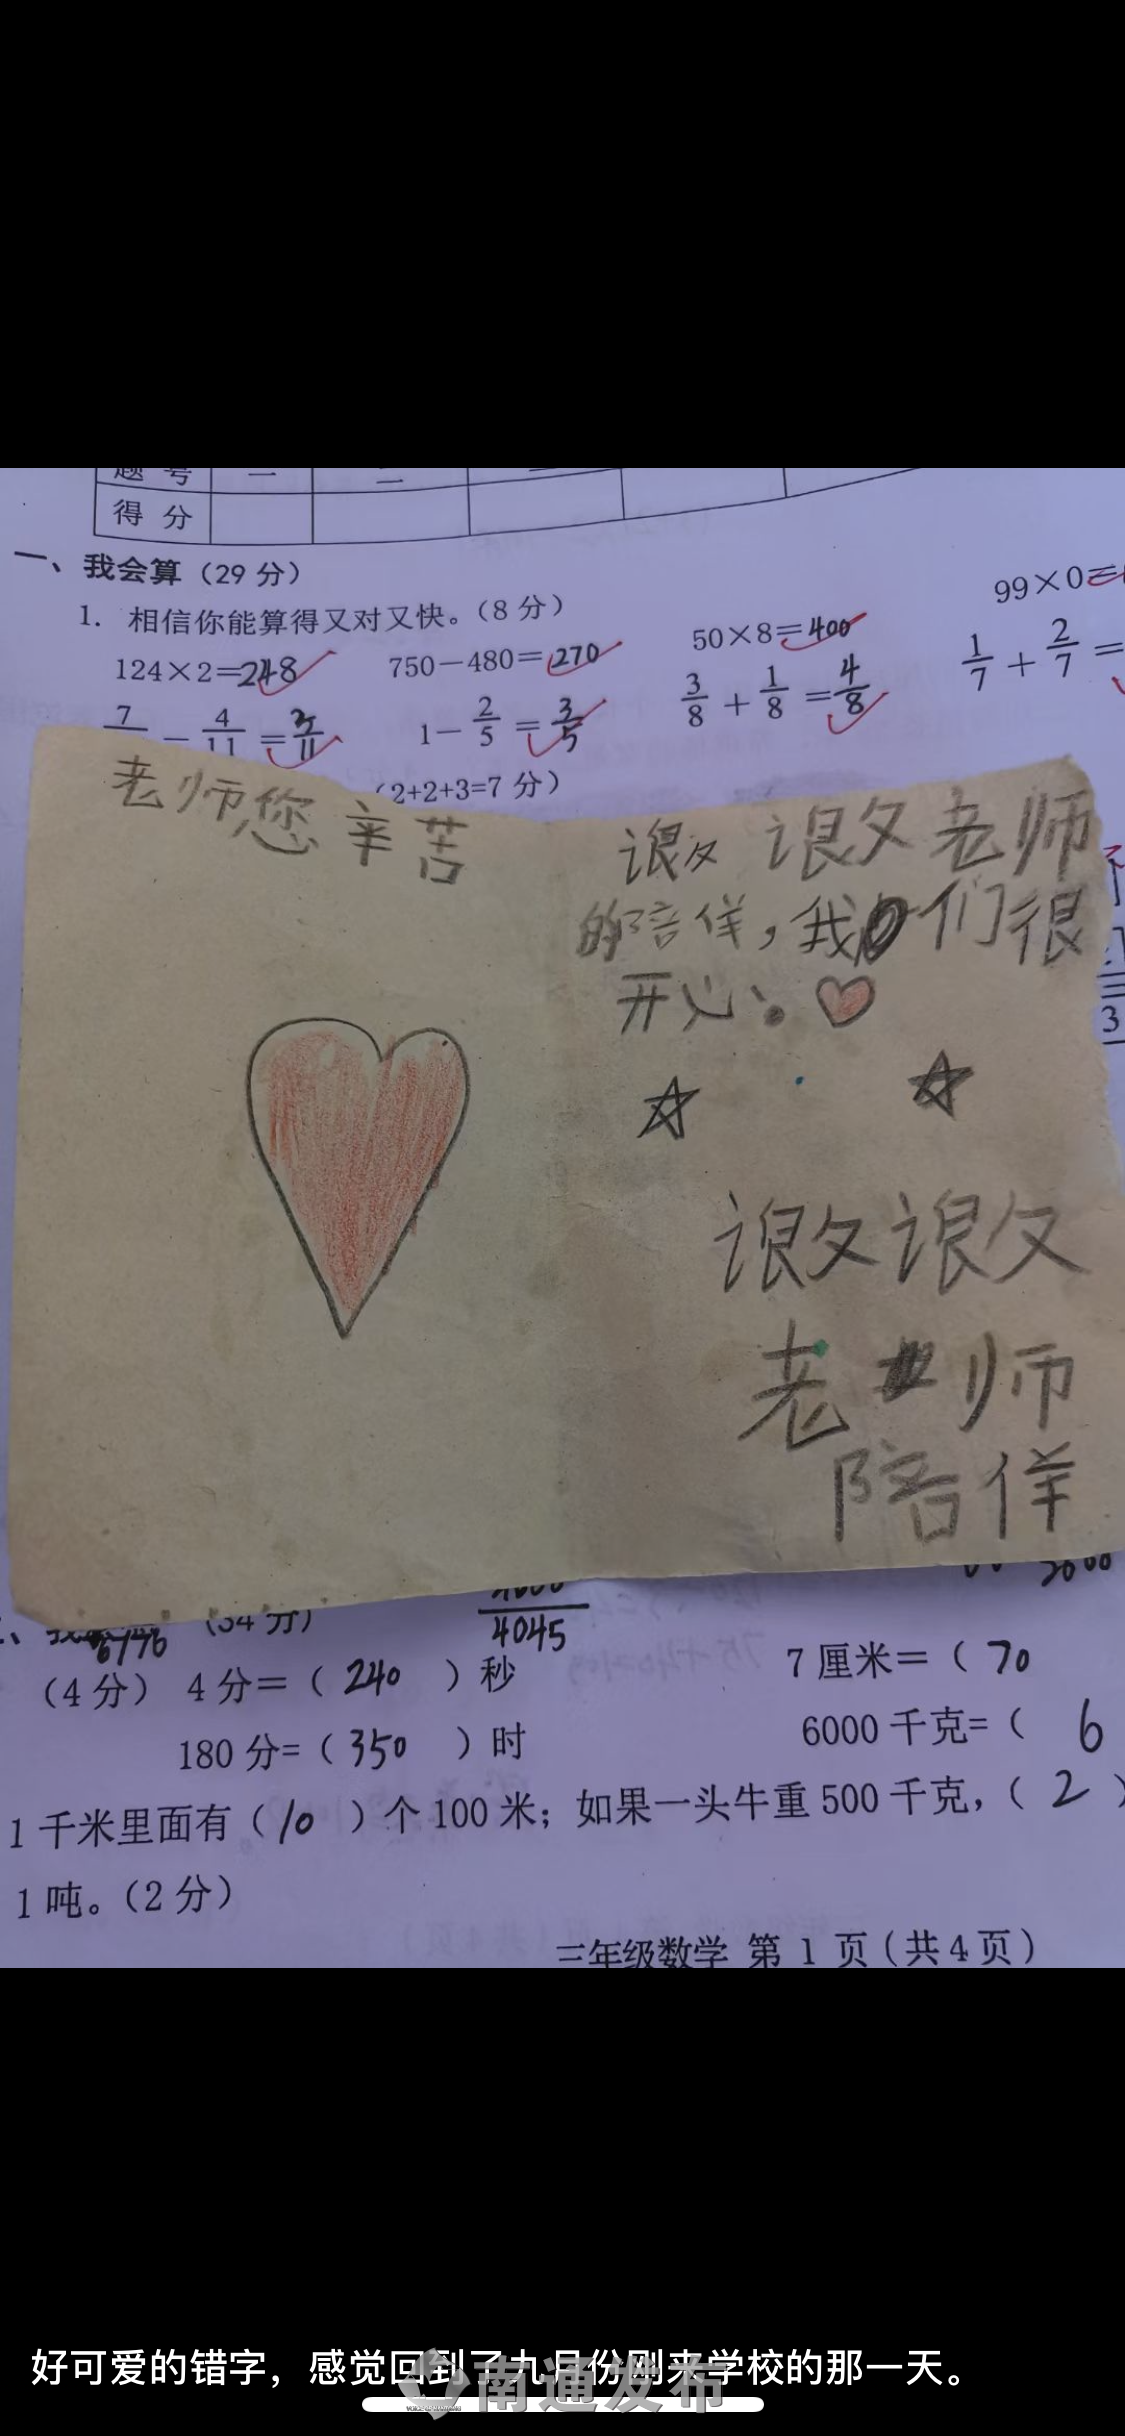 题 号 一 二
得 分
一、我会算（29 分）
1. 相信你能算得又对又快。（8 分）
124×2=248 750－480=270 50×8=400 99×0=
4/11 = 3/11 1－2/5=3/5 3/8＋1/8=4/8 1/7＋2/7=
（2+2+3=7 分）
老师您辛苦
老师
的陪伴，我们很
开心。
老师
陪伴
（34 分）
6176
4045
（4 分） 4 分＝（ 240 ）秒 7 厘米＝（ 70
180 分=（ 350 ）时 6000 千克=（ 6
1 千米里面有（ 10 ）个 100 米；如果一头牛重 500 千克，（ 2 ）
1 吨。（2 分）
三年级数学 第 1 页（共 4 页）
好可爱的错字，感觉回到了九月份刚来学校的那一天。
南通发布